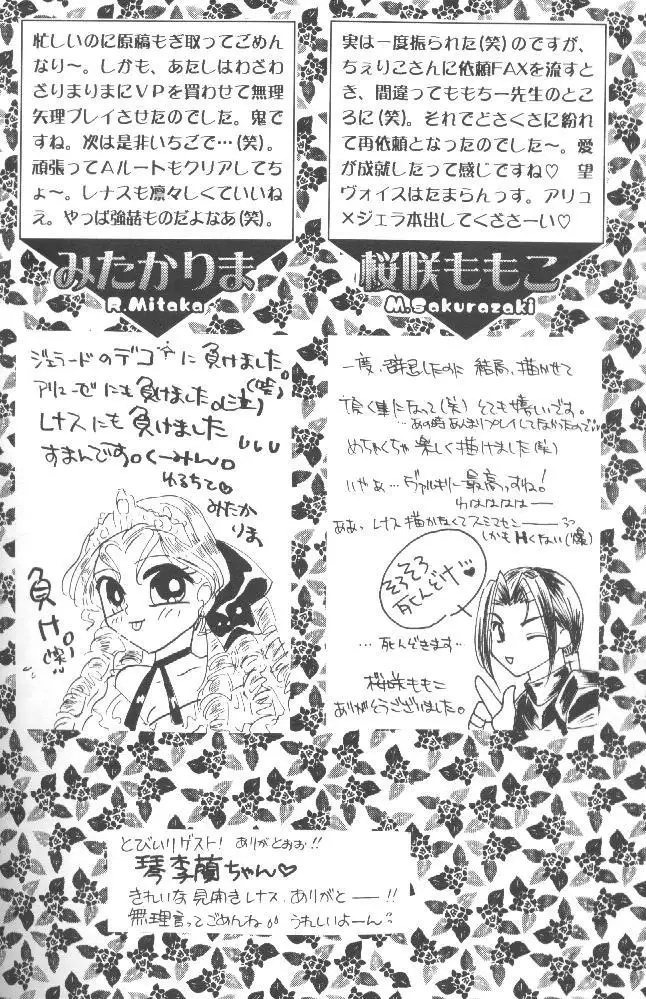 忙しいのに原稿もぎ取ってごめん
なり〜。しかも、あたしはわざわ
ざりまりまにVPを買わせて無理
矢理プレイさせたのでした。鬼で
すね。次は是非いちごで…(笑)。
頑張ってAルートもクリアしてち
ょ〜。レナスも凛々しくていいね
ぇ。やっぱ強喆ものだよなあ(笑)。
みたかりま
R.Mitaka
ジェラードのデコに負けました。
(笑)
アリューゼにも負けました。(泣)
レナスにも負けました
すまんです。くーみん。
ゆるちて♡
みたか
りま
負け。
(笑)
実は一度振られた(笑)のですが、
ちぇりこさんに依頼FAXを流すと
き、間違ってももちー先生のとこ
ろに(笑)。それでどさくさに紛れ
て再依頼となったのでした〜。愛
が成就したって感じですね♡ 望
ヴォイスはたまらんっす。アリュ
×ジェラ本出してくださーい♡
桜咲ももこ
M.Sakurazaki
一度、辞退したのに 結局、描かせて
頂く事になって(笑) とても嬉しいです。
あの時あんまりプレイしてなかったので…
めちゃくちゃ楽しく描けました(笑)
いやぁ…ヴァルキリー最高っすね!
わはははは―
ああ、レナス描かなくてスミマセン――
しかもHくない(爆)
そろそろ
死んどけ♡
…死んできます…
桜咲ももこ
ありがとうございました。
とびいりゲスト! ありがとおお!!
琴李蘭ちゃん♡
きれいな見開きレナス、ありがと――!!
無理言ってごめんね うれしいよーん